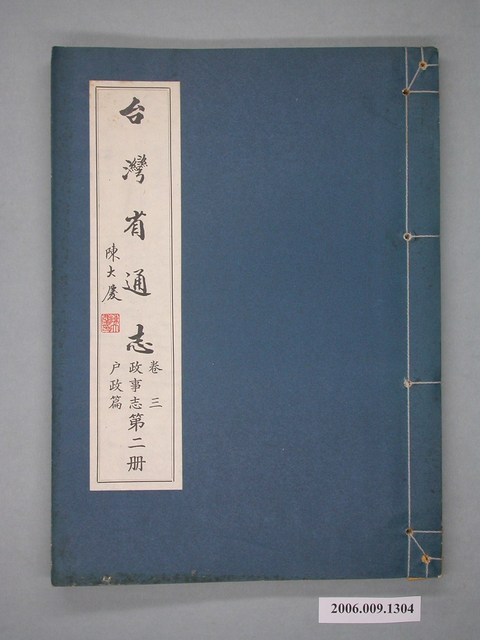 台灣省通志
陳大慶
卷三
政事志
戶政篇
第二册
2006.009.1304